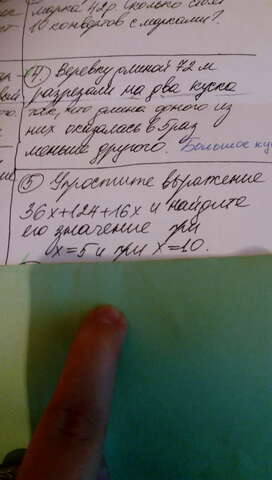 марка 42р. Сколько стоят
10 конвертов с марками?
④ Веревку длиной 72 м
разрезали на два куска
так, что длина одного из
них оказалась в 5 раз
меньше другого. Большое ку
⑤ Упростите выражение
36x+124+16x и найдите
его значение при
x=5 и при x=10.